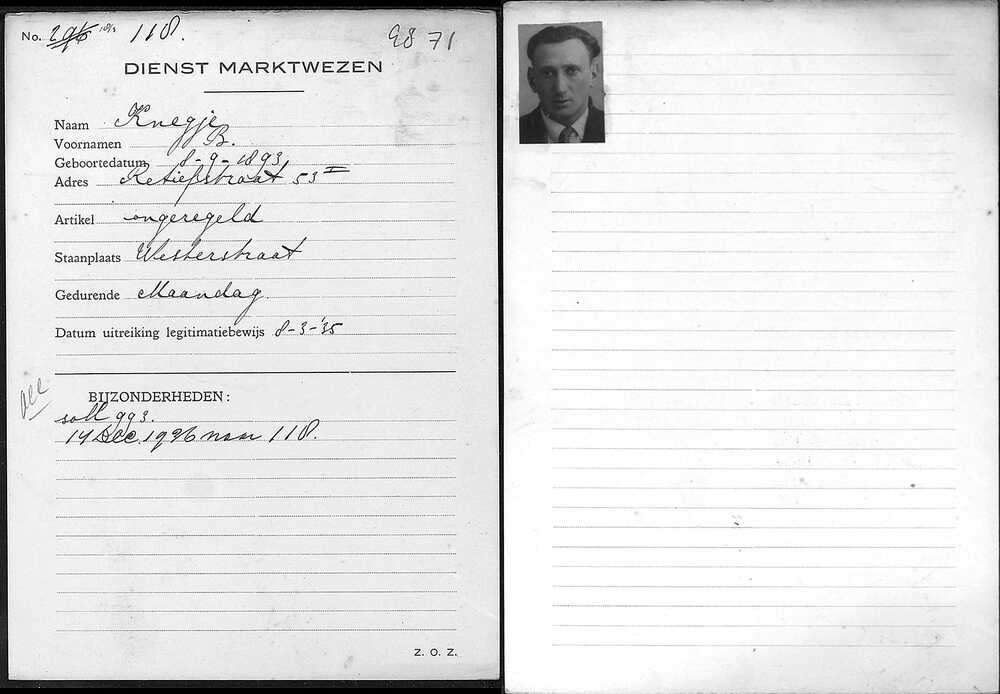 No. 296 118.
9871
DIENST MARKTWEZEN
Naam Knegje
Voornamen B.
Geboortedatum 8-9-1893
Adres Retiefstraat 53 II
Artikel ongeregeld
Staanplaats Westerstraat
Gedurende Maandag.
Datum uitreiking legitimatiebewijs 8-3-'35
BIJZONDERHEDEN:
soll 993.
14 Dec. 1936 naar 118.
Z. O. Z.